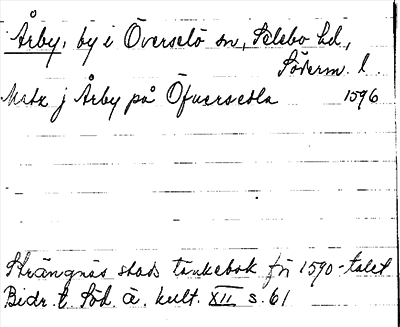 Årby, by i Överselö sn, Selebo hd,
Söderm. l.
Matz j Årby på Öfuersella 1596
Strängnäs stads tänkebok fr 1590-talet
Bidr. t. Söd. ä. kult. XII s. 61